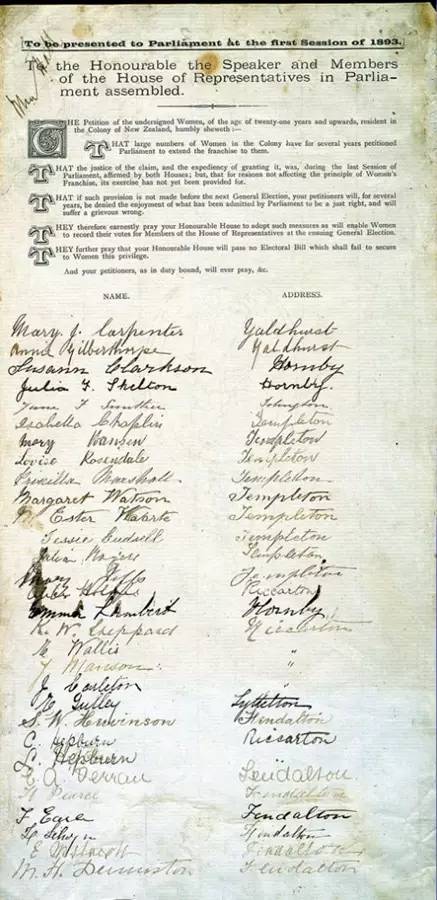 To be presented to Parliament at the first Session of 1893.
To the Honourable the Speaker and Members
of the House of Representatives in Parlia-
ment assembled.
THE Petition of the undersigned Women, of the age of twenty-one years and upwards, resident in
the Colony of New Zealand, humbly sheweth :—
THAT large numbers of Women in the Colony have for several years petitioned
Parliament to extend the franchise to them.
THAT the justice of the claim, and the expediency of granting it, was, during the last Session of
Parliament, affirmed by both Houses; but, that for reasons not affecting the principle of Women's
Franchise, its exercise has not yet been provided for.
THAT if such provision is not made before the next General Election, your petitioners will, for several
years, be denied the enjoyment of what has been admitted by Parliament to be a just right, and will
suffer a grievous wrong.
THEY therefore earnestly pray your Honourable House to adopt such measures as will enable Women
to record their votes for Members of the House of Representatives at the ensuing General Election.
THEY further pray that your Honourable House will pass no Electoral Bill which shall fail to secure
to Women this privilege.
And your petitioners, as in duty bound, will ever pray, &c.
NAME. ADDRESS.
Mary J. Carpenter Yaldhurst
Annie Gilberthorpe Yaldhurst
Susann Clarkson Hornby
Julia F. Shelton Hornby
Jane
Isabella Chaplin Templeton
Mary Hansen Templeton
Louisa Rosendale Templeton
Priscilla Marshall Templeton
Margaret Watson Templeton
Ester Templeton
Jessie Templeton
Julia Templeton
Mary Templeton
Riccarton
Emma Lambert Hornby
K. W. Sheppard Riccarton
M Wallis "
Manson "
J Carleton "
M Gulley Lyttelton
S. W. Fendalton
C Hepburn Riccarton
Hepburn
Fendalton
Pearce Fendalton
F Fendalton
Selwyn Fendalton
E Fendalton
M. H. Denniston Fendalton